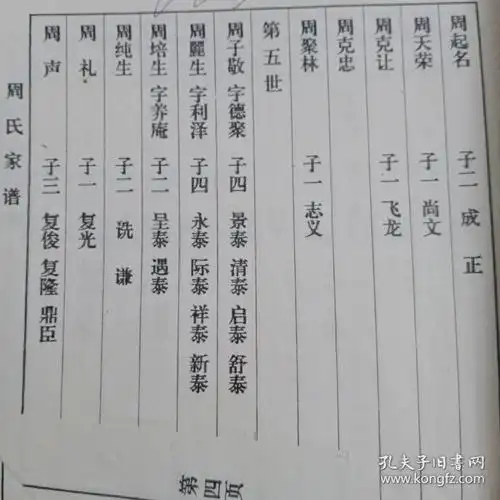 周起名 子二 成 正
周天荣 子一 尚文
周克让 子一 飞龙
周克忠
周聚林 子一 志义
第五世
周子敬 字德聚 子四 景泰 清泰 启泰 舒泰
周丽生 字利泽 子四 永泰 际泰 祥泰 新泰
周培生 字养庵 子二 呈泰 遇泰
周纯生 子二 诜 谦
周礼 子一 复光
周声 子三 复俊 复隆 鼎臣
周氏家谱
第四页
孔夫子旧书网
www.kongfz.com